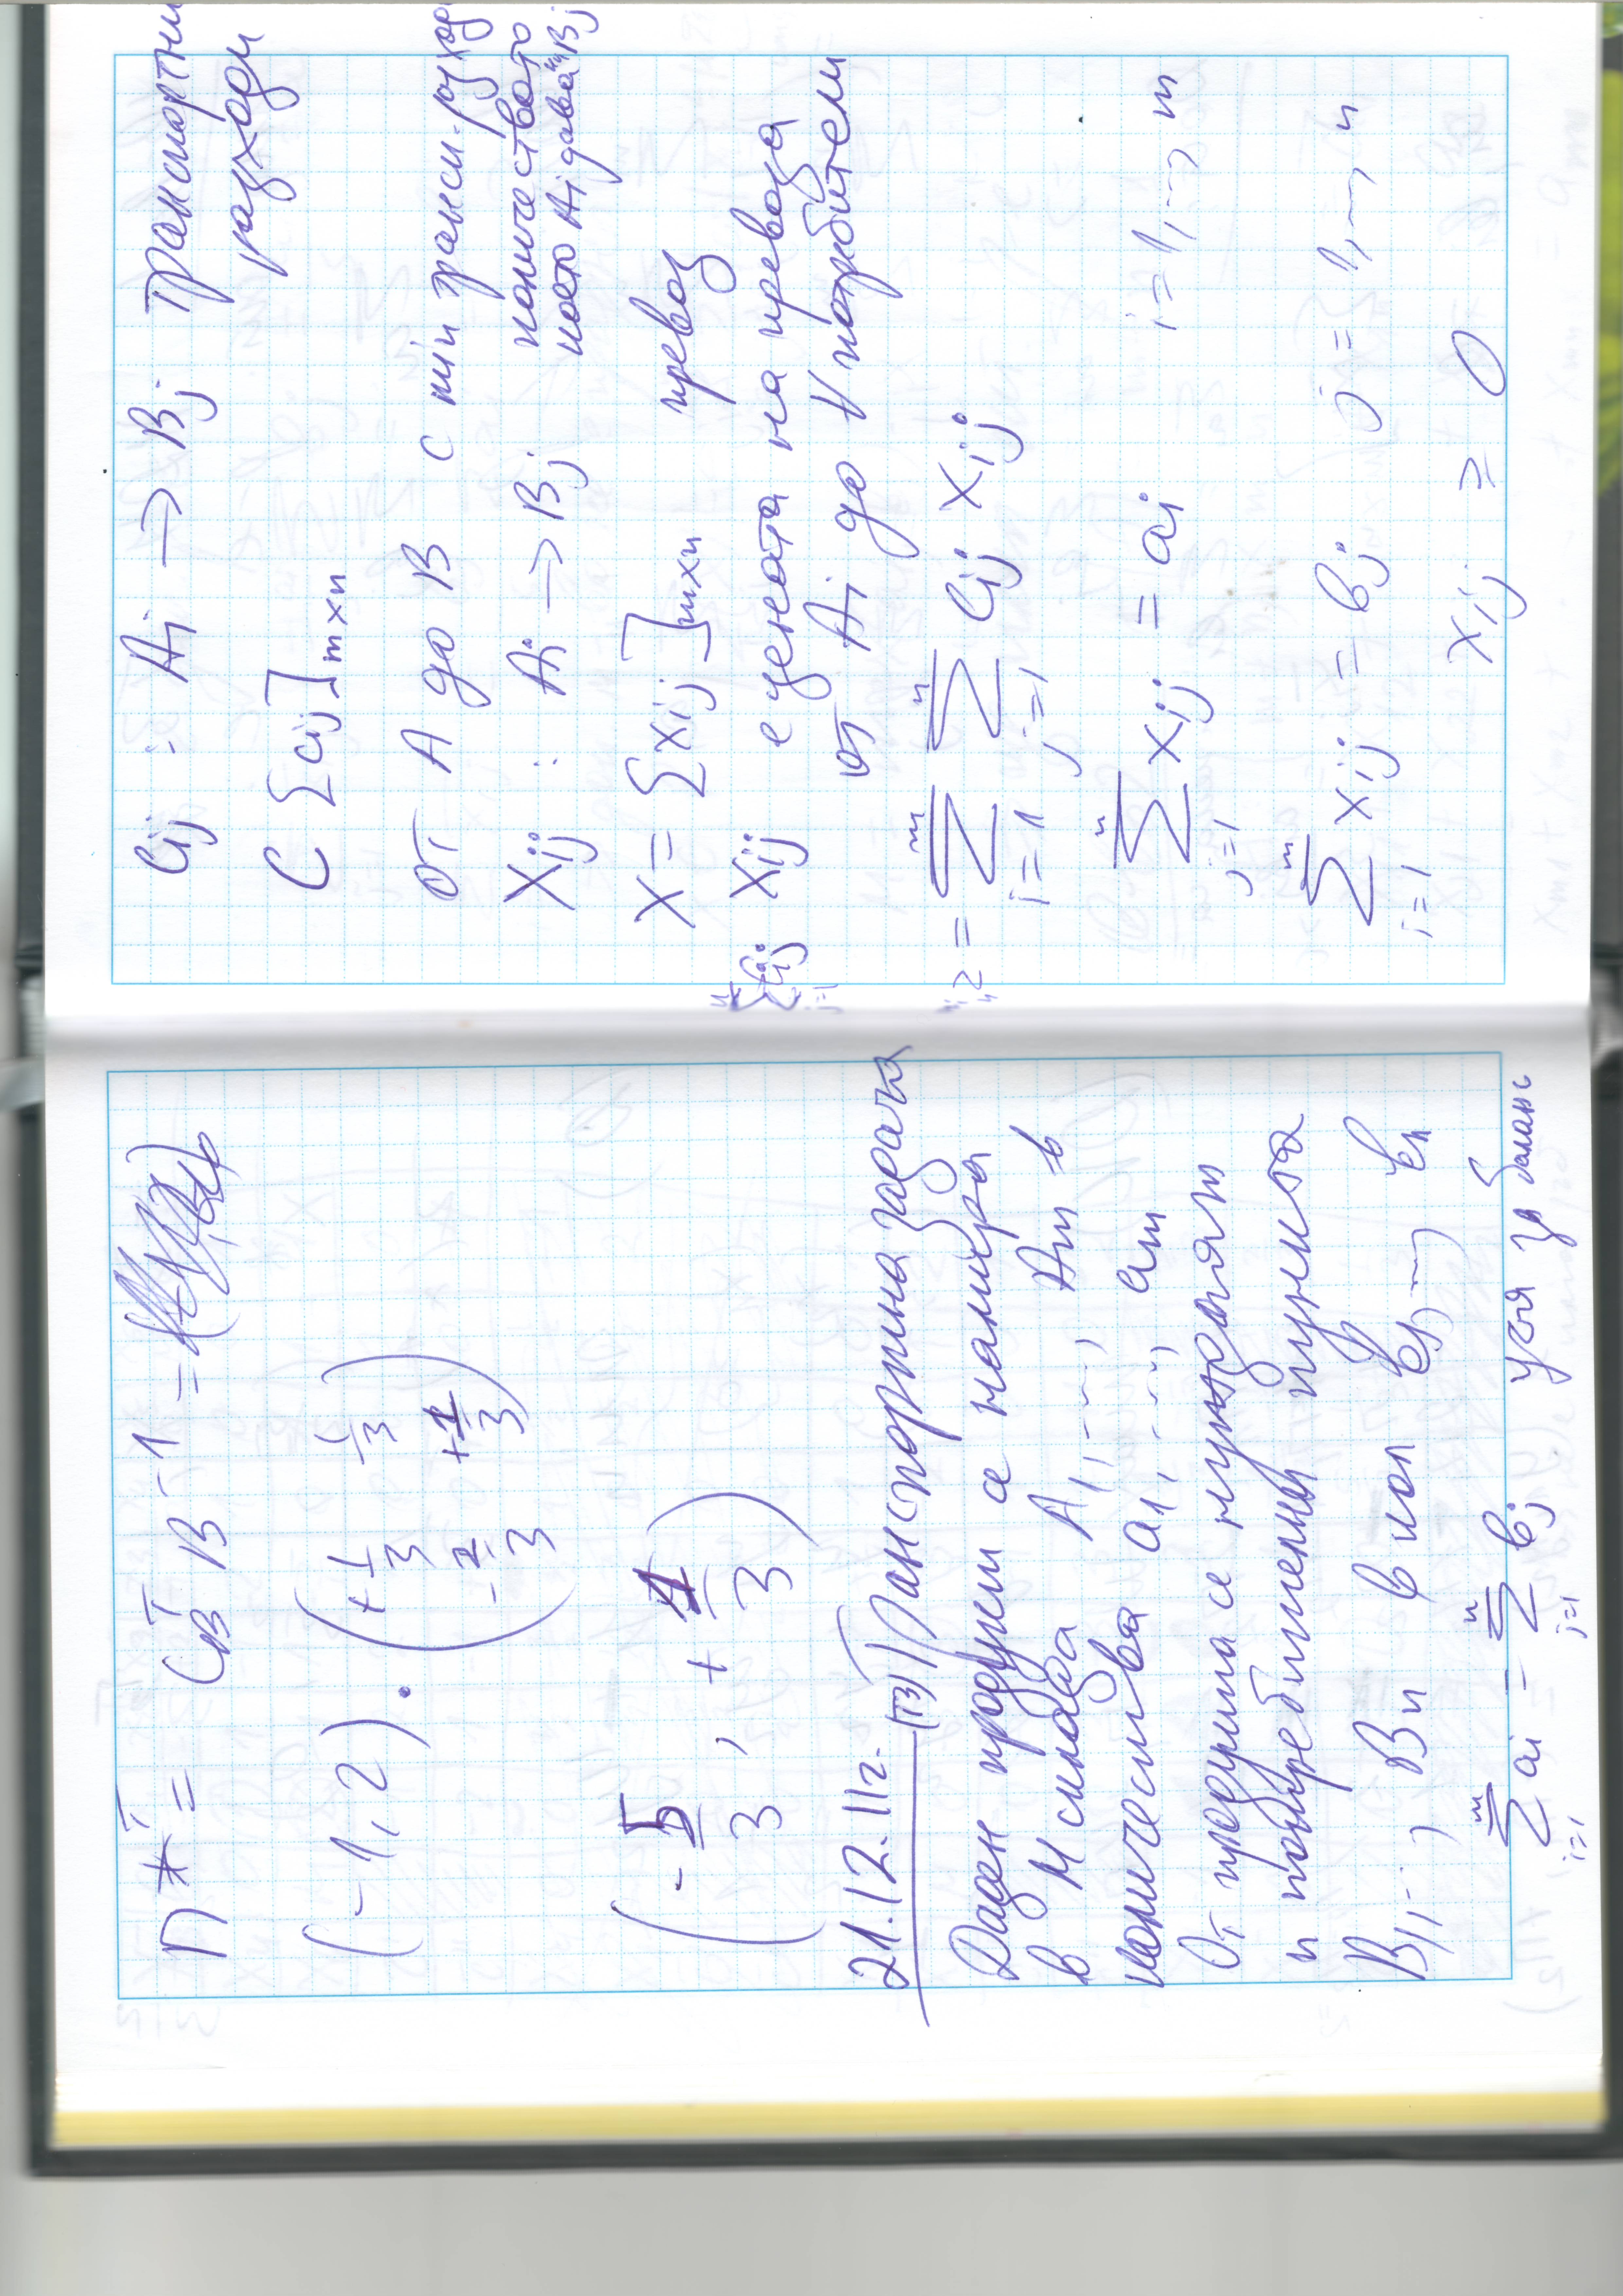 π*ᵀ = C_Bᵀ B⁻¹ =
(-1, 2) . ( +1/3 1/3
-2/3 +1/3 )
( -5/3 , + 1/3 )
21.12.11г. (ТЗ) Транспортна задача
Даден продукт се намира
в М склада A1, ..., Am в
количества a1, ..., am
От продукта се нуждаят
n потребителни пункта
B1, ..., Bn в кол b1, ..., bn
m∑i=1 ai = n∑j=1 bj усл за баланс
Cij : Ai → Bj Транспортни
разходи
C [cij]mxn
от A до B с min трансп. разход
Xij : Ai → Bj количеството
което Ai дава на Bj
X = [xij]mxn превоз
n∑j=1 Cij Xij е цената на превоза
от Ai до V потребител
min z = m∑i=1 n∑j=1 Cij Xij
n∑j=1 xij = ai i = 1, ..., m
m∑i=1 xij = bj j = 1, ..., n
xij ≥ 0